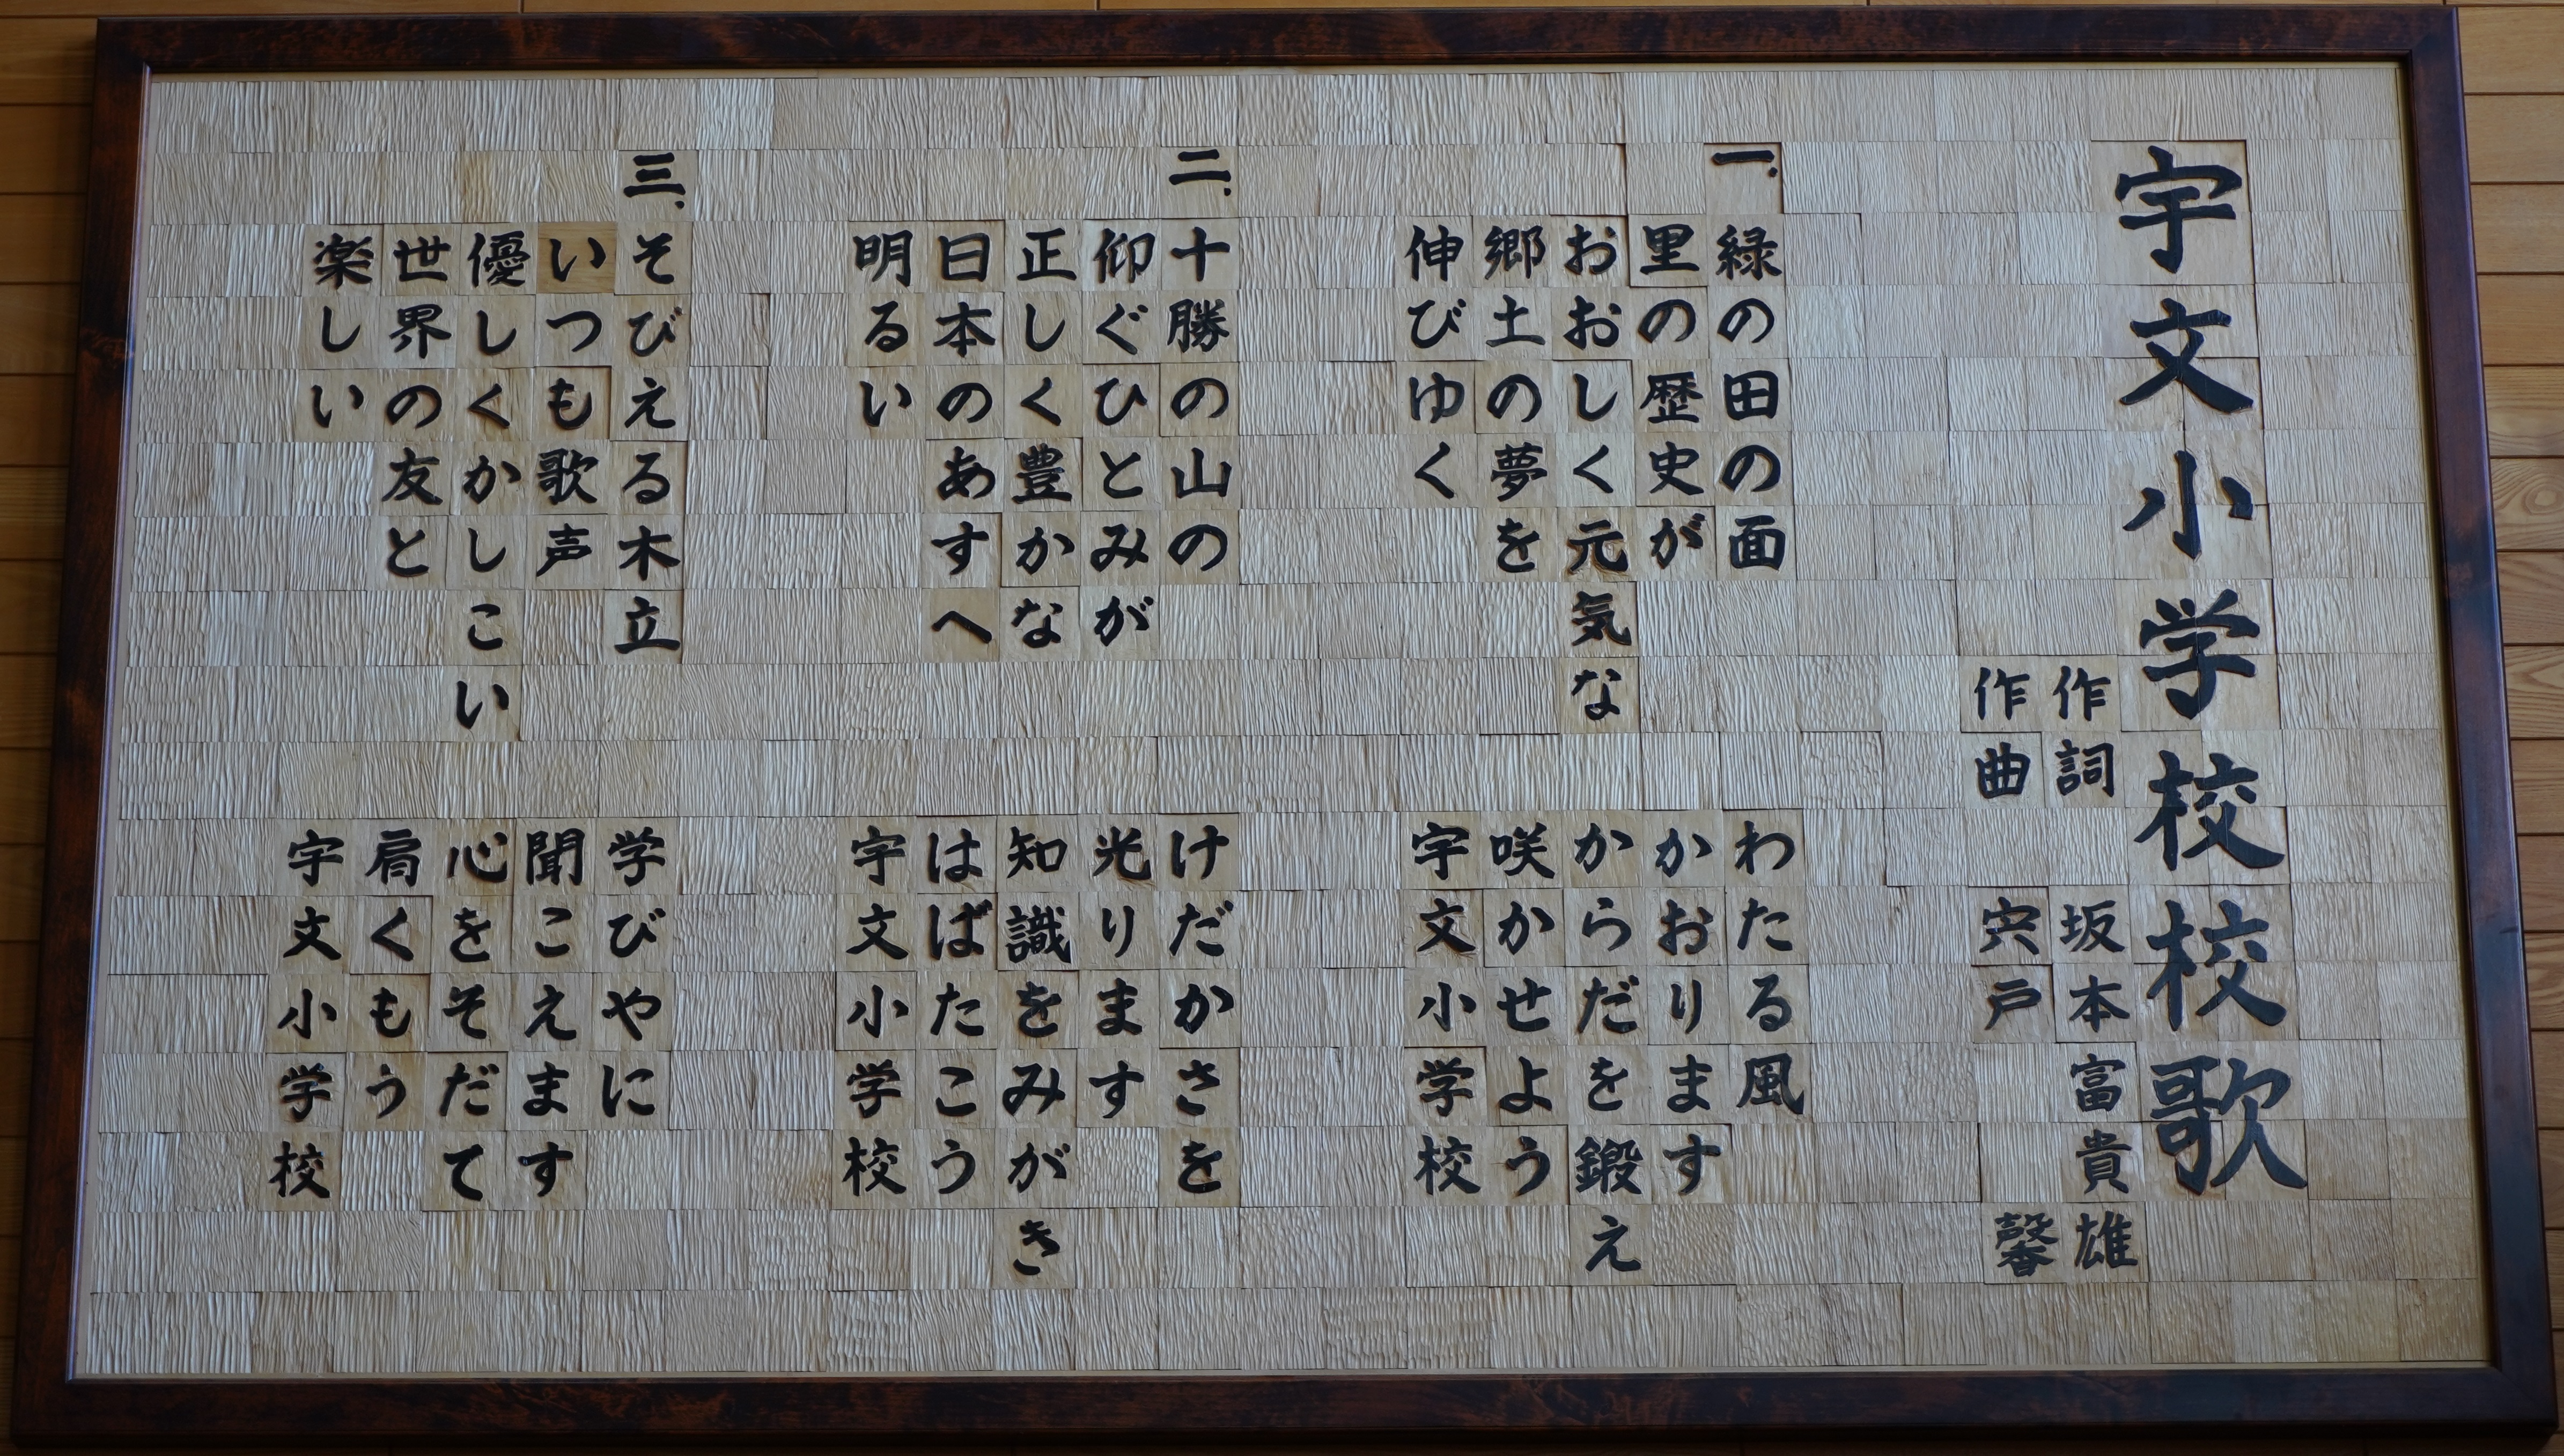 宇文小学校校歌
作詞 坂本富貴雄
作曲 宍戸馨
一、緑の田の面 わたる風
里の歴史が かおります
おおしく元気な からだを鍛え
郷土の夢を 咲かせよう
伸びゆく 宇文小学校
二、十勝の山の けだかさを
仰ぐひとみが 光ります
正しく豊かな 知識をみがき
日本のあすへ はばたこう
明るい 宇文小学校
三、そびえる木立 学びやに
いつも歌声 聞こえます
優しくかしこい 心をそだて
世界の友と 肩くもう
楽しい 宇文小学校